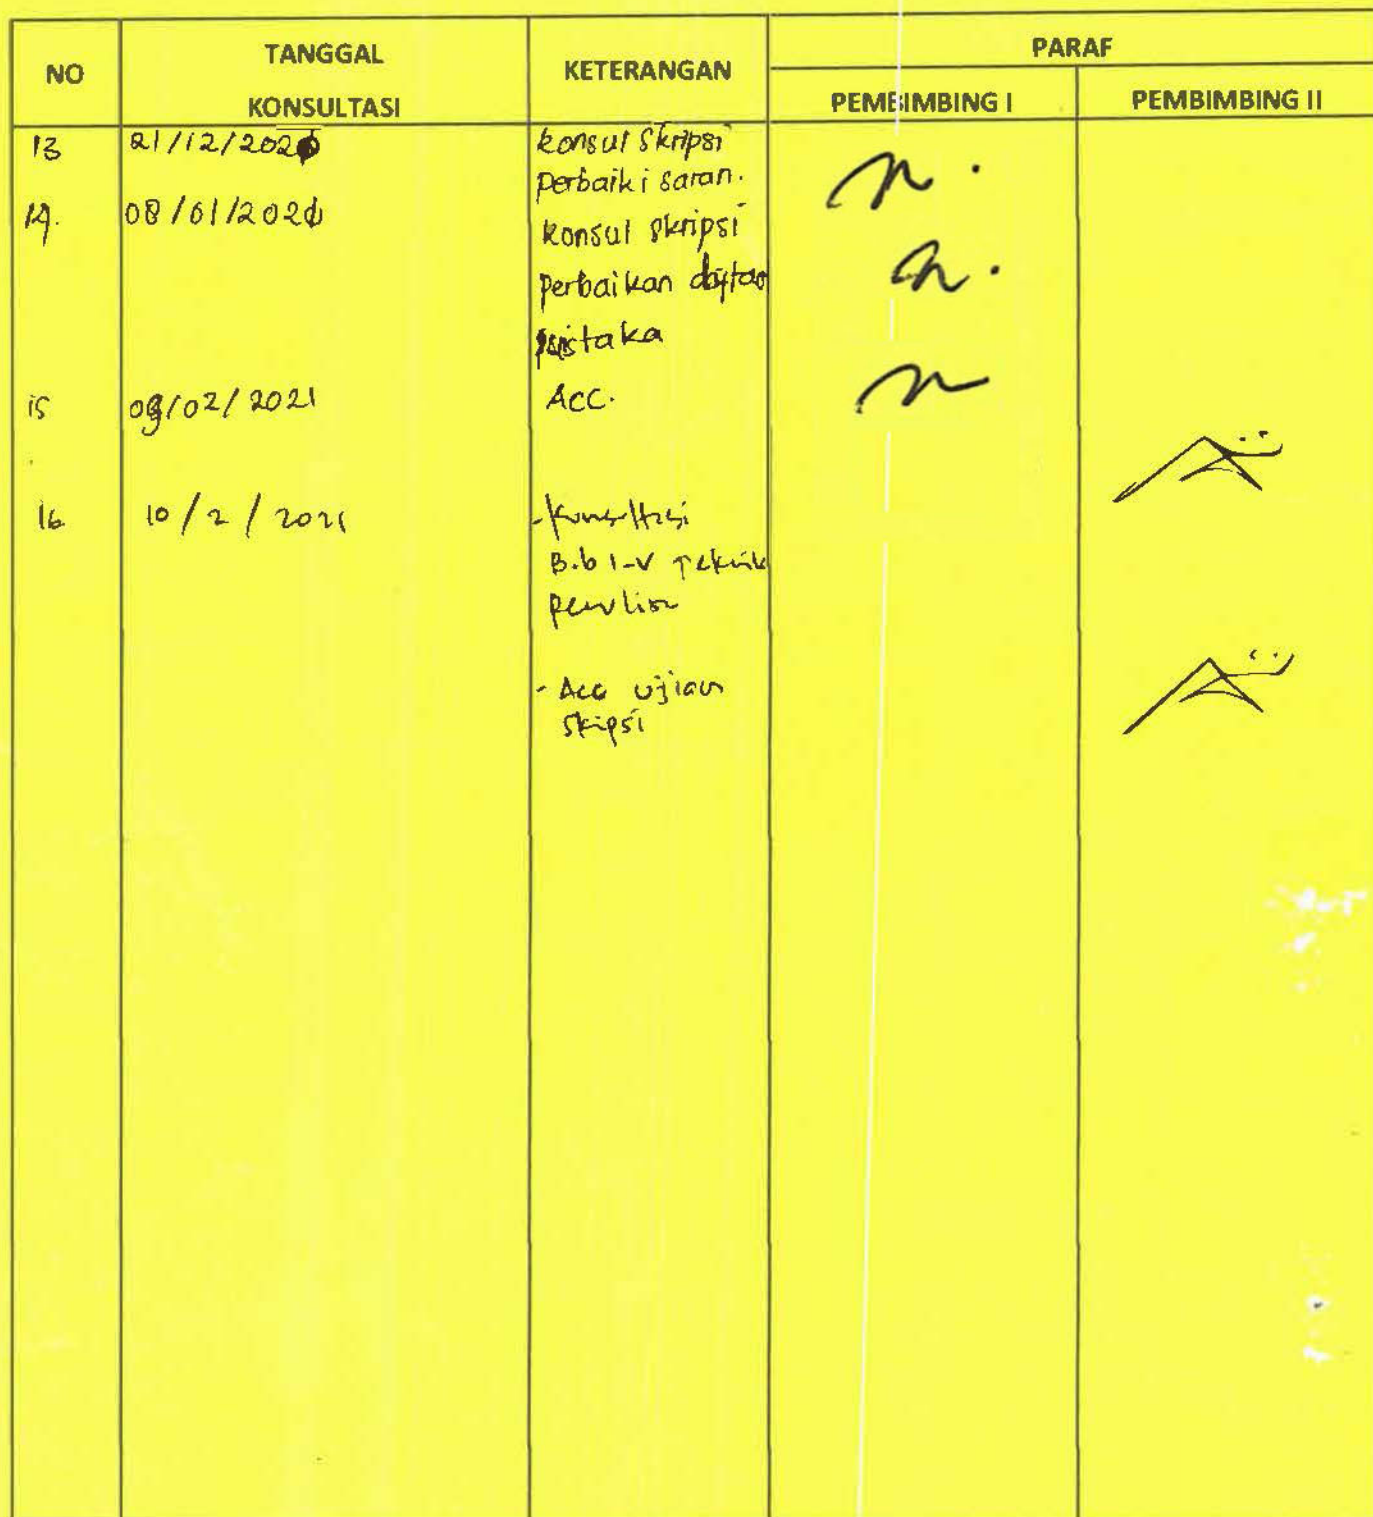 NO TANGGAL KONSULTASI KETERANGAN PARAF
PEMBIMBING I PEMBIMBING II
13 21/12/2020 konsul skripsi
perbaiki saran.
14. 08/01/2021 konsul skripsi
perbaikan daftar
pustaka
15 09/02/2021 ACC.
16 10/2/2021 - konsultasi
Bab I-V teknik
- Acc ujian
skripsi